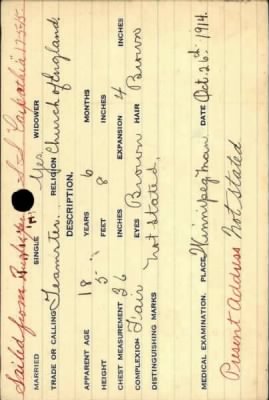 Sailed from S.S. "Carpathia" 17-5-15.
MARRIED SINGLE Yes WIDOWER
TRADE OR CALLING Teamster. RELIGION Church of England
DESCRIPTION.
APPARENT AGE 18 YEARS 6 MONTHS
HEIGHT 5 FEET 8 INCHES
CHEST MEASUREMENT 36 INCHES EXPANSION 4 INCHES
COMPLEXION Fair EYES Brown HAIR Brown
DISTINGUISHING MARKS Not Stated.
MEDICAL EXAMINATION. PLACE Winnipeg Man DATE Oct. 26th 1914.
Present Address Not Stated